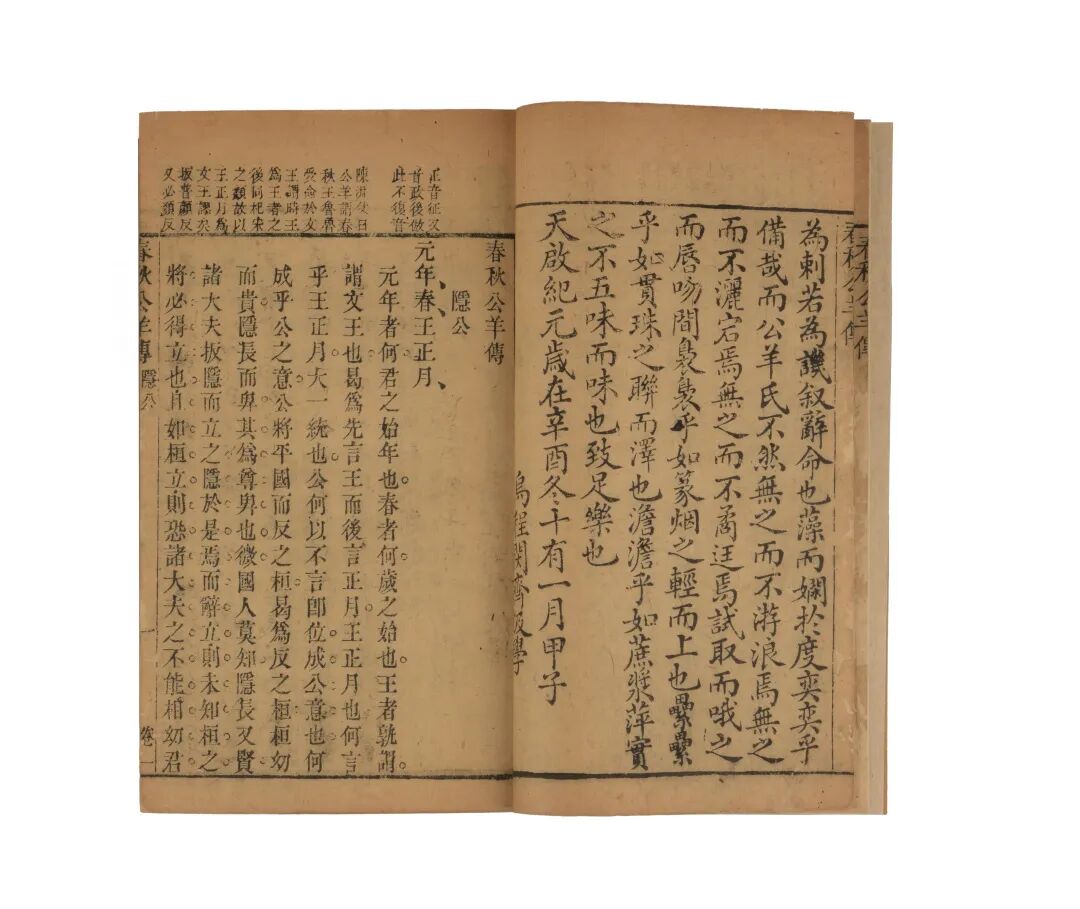 春秋公羊傳
為刺若為譏叙辭命也藻而嫻於度奕奕乎
備哉而公羊氏不然無之而不游浪焉無之
而不灑宕焉無之而不矞迋焉試取而哦之
而唇吻間裊裊乎如篆烟之輕而上也纍纍
乎如貫珠之聯而澤也澹澹乎如蔗漿萍實
之不五味而味也致足樂也
天啟紀元歲在辛酉冬十有一月甲子
烏程閔齊伋學
春秋公羊傳
隱公
正音征又
音政後倣
此不復音
元年春王正月
元年者何君之始年也春者何歲之始也王者孰謂
謂文王也曷爲先言王而後言正月王正月也何言
乎王正月大一統也公何以不言卽位成公意也何
成乎公之意公將平國而反之桓曷爲反之桓桓幼
而貴隱長而卑其爲尊卑也微國人莫知隱長又賢
諸大夫扳隱而立之隱於是焉而辭立則未知桓之
將必得立也且如桓立則恐諸大夫之不能相幼君
曰
公羊謂春
秋王魯魯
受命於文
王謂時王
爲王者之
後同杞宋
之類故以
王正月爲
文王謬矣
扳普顏反
又必顏反
春秋公羊傳 隱公 一 卷一